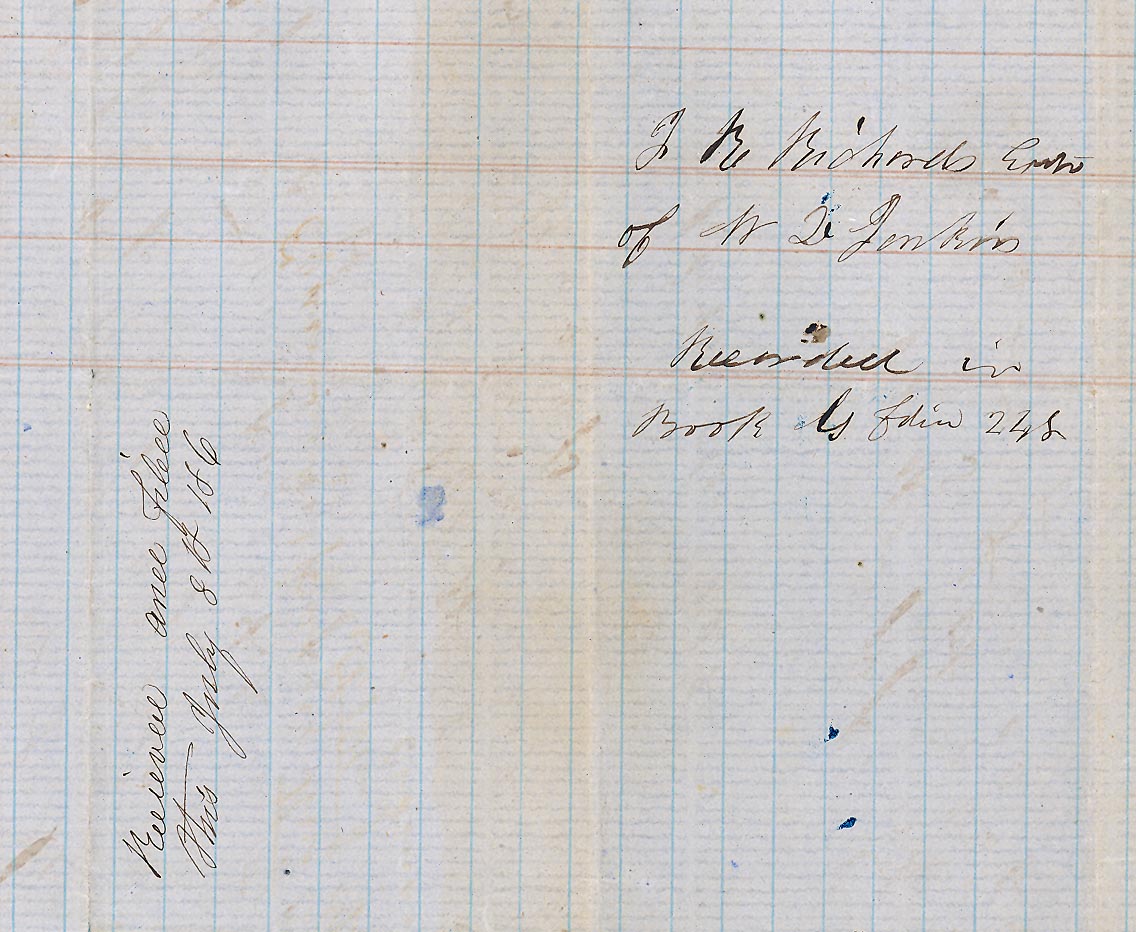 J R Richards Extr
of W D Jenkins
Recorded in
Book G folio 248
Recieved and filed
this July 8th 186